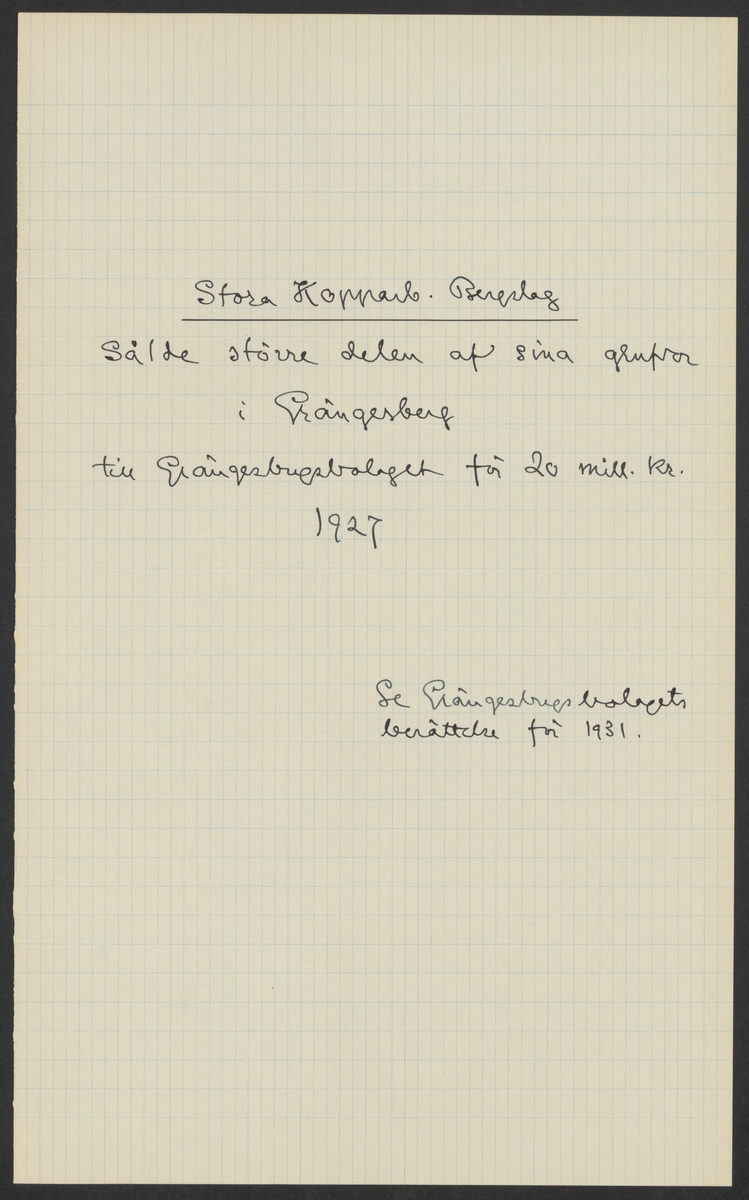 Stora Kopparb. Bergslag
Sålde större delen af sina grufvor
i Grängesberg
till Grängesbergsbolaget för 20 mill. kr.
1927
Se Grängesbergsbolagets
berättelse för 1931.